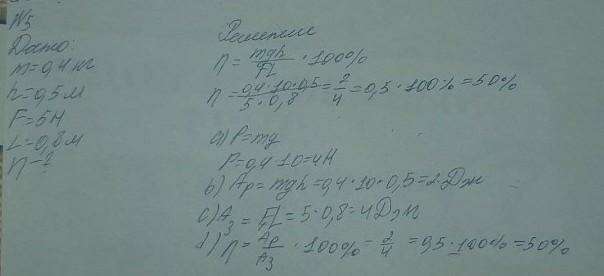 №5
Дано:
m=0,4 кг
h=0,5 м
F=5Н
L=0,8 м
η-?
Решение
η = mgh/FL · 100%
η = 0,4·10·0,5/5·0,8 = 2/4 = 0,5 · 100% = 50%
a) P=mg
P=0,4·10=4Н
b) Aр = mgh = 0,4·10·0,5=2 Дж
c) Aз = FL = 5·0,8 = 4 Дж
d) η = Aр/Aз · 100% = 2/4 = 0,5·100% = 50%